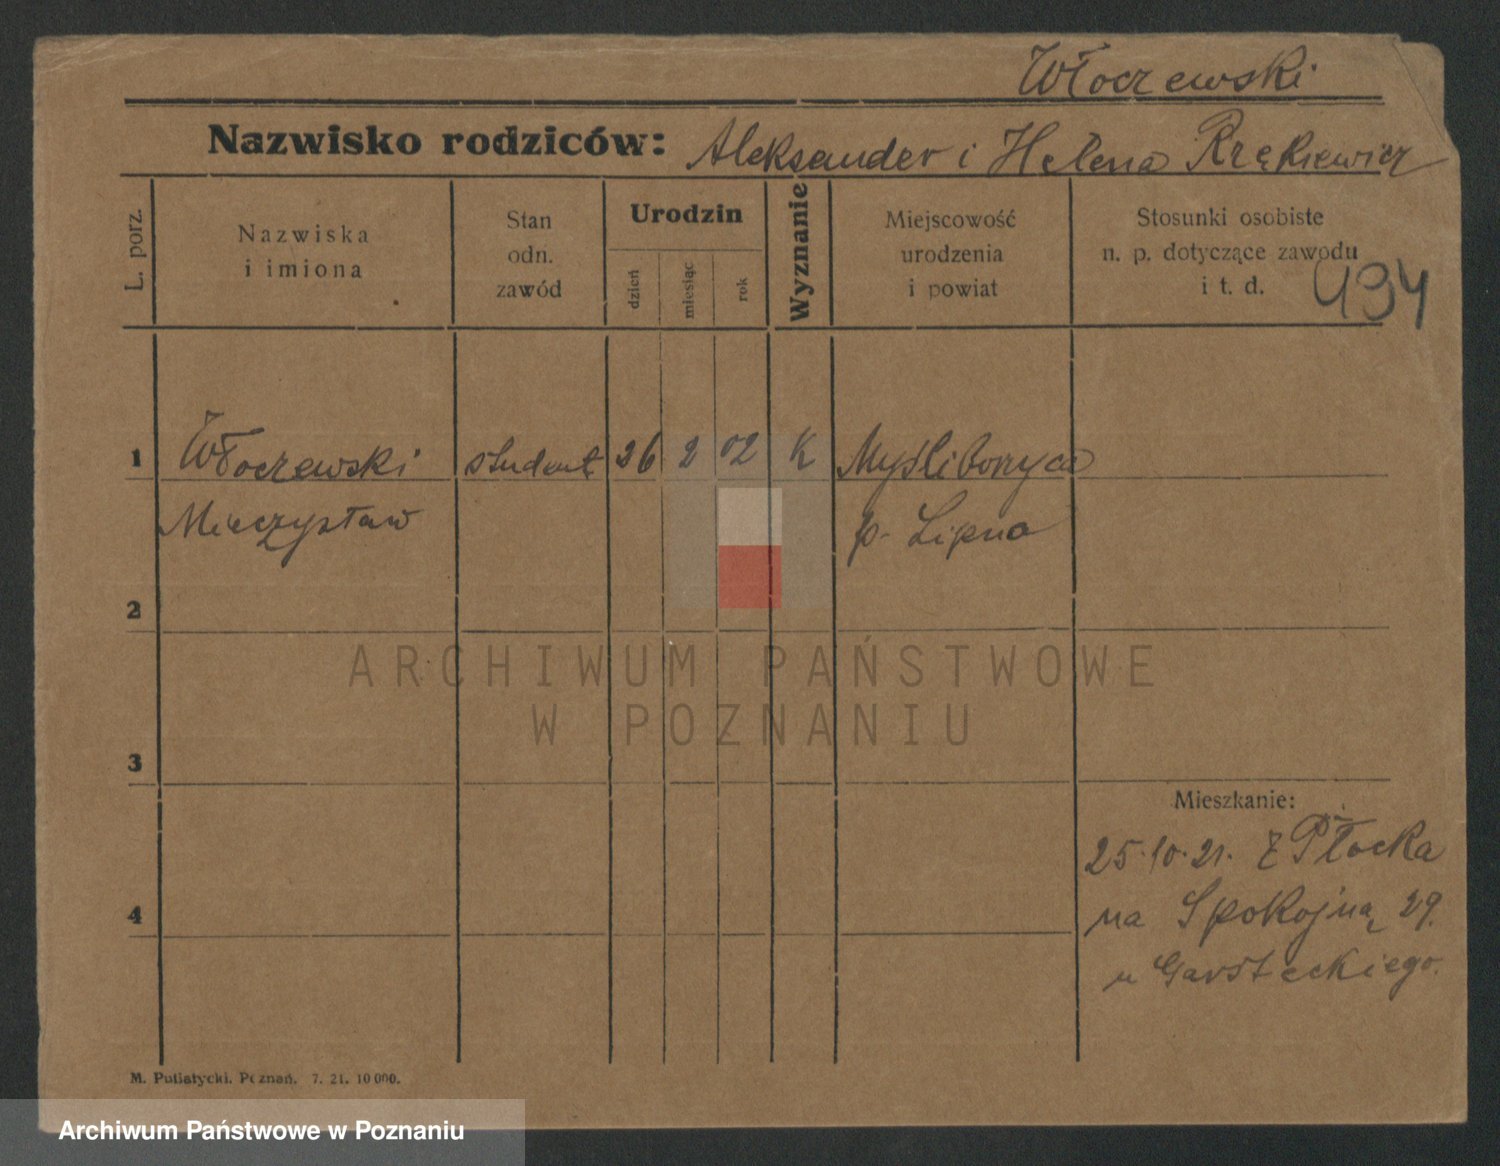 Włoczewski
Nazwisko rodziców: Aleksander i Helena Rzękiewicz
L. porz.
Nazwiska
i imiona
Stan
odn.
zawód
Urodzin
dzień
miesiąc
rok
Wyznanie
Miejscowość
urodzenia
i powiat
Stosunki osobiste
n. p. dotyczące zawodu
i t. d.
494
1 Włoczewski student 26 2 02 K Myśliborzyce
Mieczysław p. Lipno
2
3
Mieszkanie:
25.10.21. z Płocka
4
na Spokojną 29.
u Garsteckiego.
M. Putiatycki. Poznań. 7. 21. 10 000.
ARCHIWUM PAŃSTWOWE
W POZNANIU
Archiwum Państwowe w Poznaniu